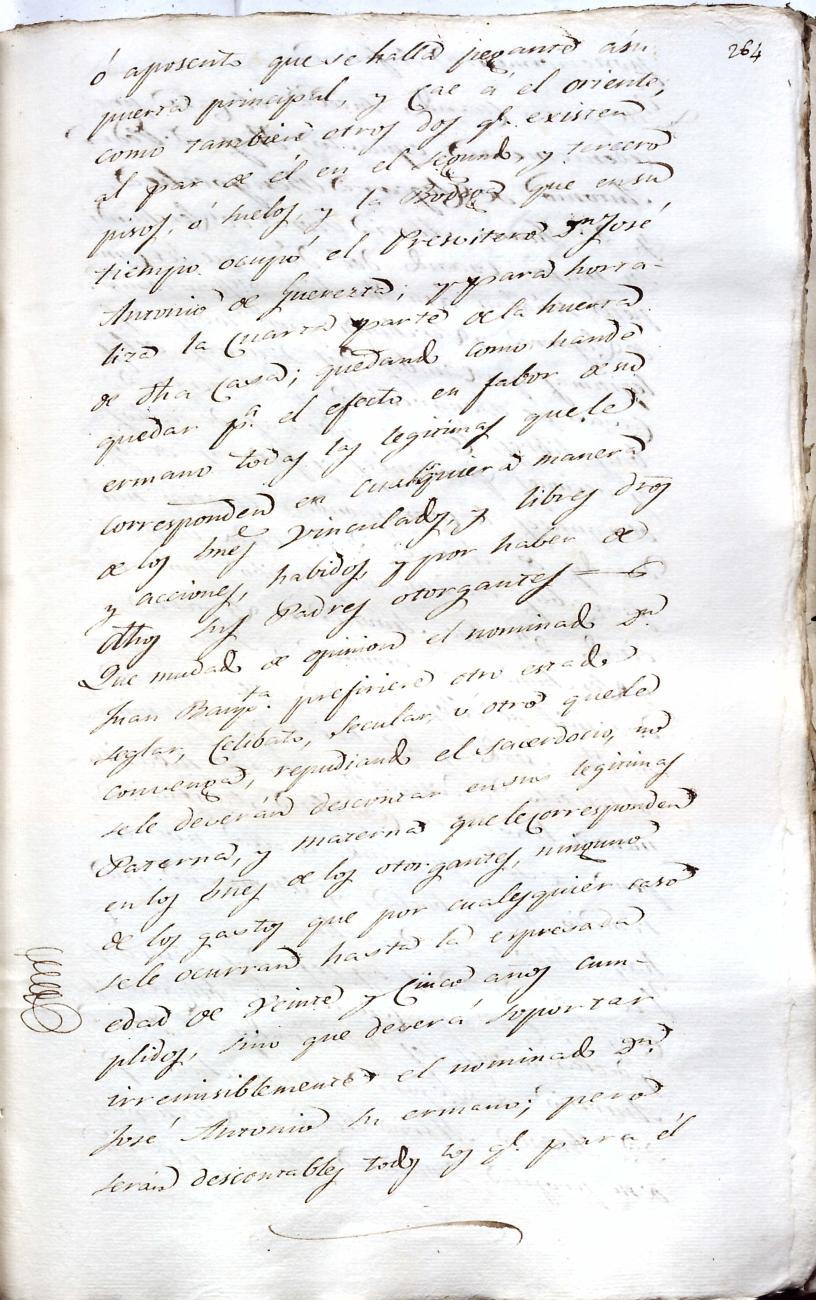 264
ó aposento que se halla pegante á su
puerta principal, y Cae á el oriente,
como tambien otros dos qe. existen
al par de él en el segundo, y tercero
pisos, ó suelos, y la Bodega que en su
tiempo ocupó el Presvitero Dn. José
Antonio de Guerezta; y para horta-
liza la Cuarta parte de la huerta
de dha Casa; quedando como handé
quedar pa. el efecto en fabor de su
ermano todas las legitimas que le
corresponden en cualquiera manera
de los bnes vinculados, y libres dros
y acciones, habidos, y por haber de
dhos sus Padres otorgantes
Que mudado de opinion el nominado Dn.
Juan Baupta. prefiriere otro estado
seglar, Celibato, secular, ú otro que le
convenga, repudiando el sacerdocio, no
sele deverán descontar en sus legitimas
Paterna, y materna que le corresponden
en los bnes de los otorgantes, ninguno
de los gastos que por cualesquiér caso
sele ocurran hasta la espresada
edad de Veinte y Cinco años cum-
plidos, sino que deverá soportar
irremisiblemente el nominado Dn.
José Antonio su ermano; pero
serán descontables todos los qe. para él